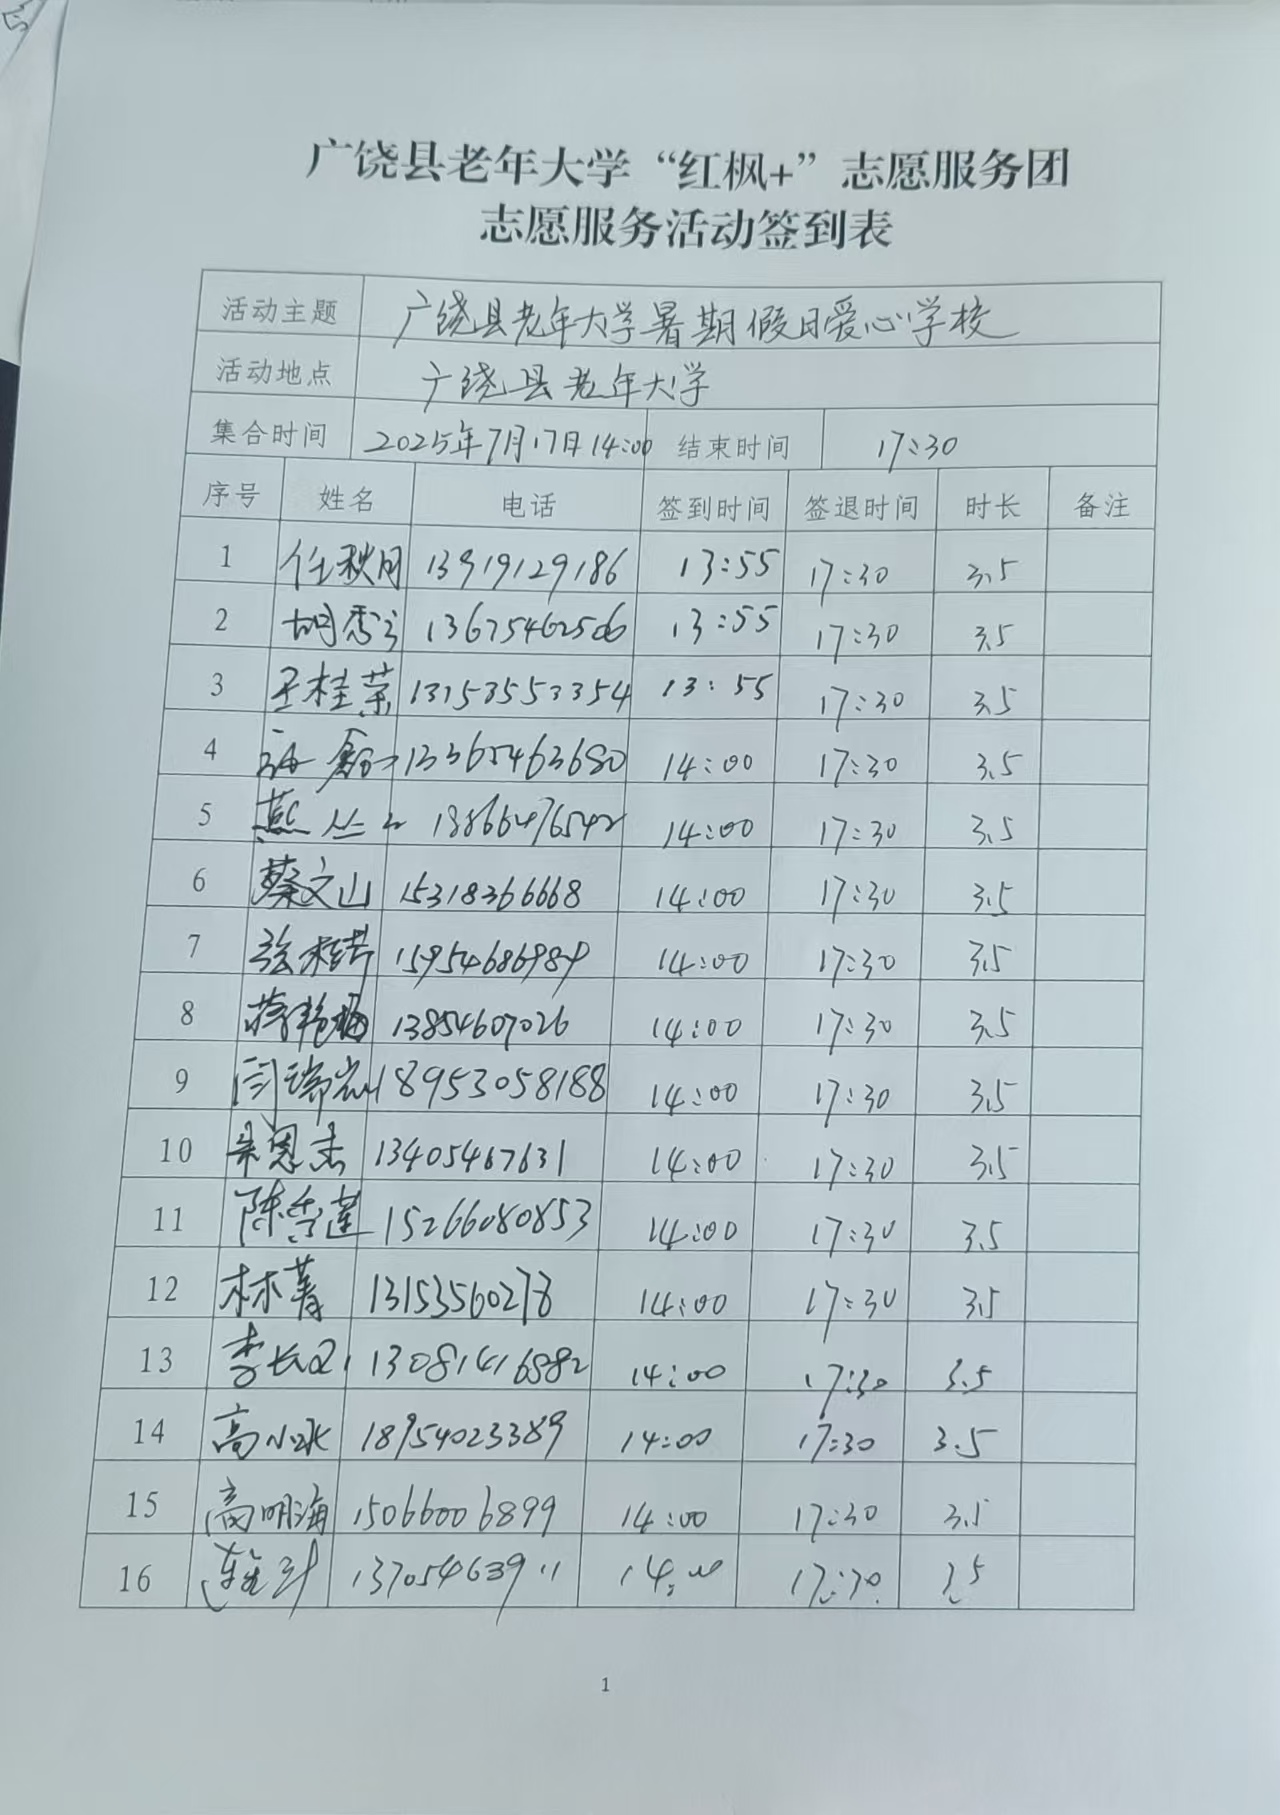 广饶县老年大学“红枫+”志愿服务团
志愿服务活动签到表
活动主题 广饶县老年大学暑期假日爱心学校
活动地点 广饶县老年大学
集合时间 2025年7月17日14:00 结束时间 17:30
序号 姓名 电话 签到时间 签退时间 时长 备注
1 任秋月 13919129186 13:55 17:30 3.5
2 13675462506 13:55 17:30 3.5
3 王桂荣 13153553354 13:55 17:30 3.5
4 13365463680 14:00 17:30 3.5
5 13866476542 14:00 17:30 3.5
6 蔡文山 15318366668 14:00 17:30 3.5
7 15954686989 14:00 17:30 3.5
8 蒋艳梅 13854607026 14:00 17:30 3.5
9 18953058188 14:00 17:30 3.5
10 朱恩杰 13405467631 14:00 17:30 3.5
11 陈雪莲 15266080853 14:00 17:30 3.5
12 林菁 13153560278 14:00 17:30 3.5
13 李长 13081416882 14:00 17:30 3.5
14 高小冰 18954023389 14:00 17:30 3.5
15 高明海 15066006899 14:00 17:30 3.5
16 13705463911 14:00 17:30 3.5
1